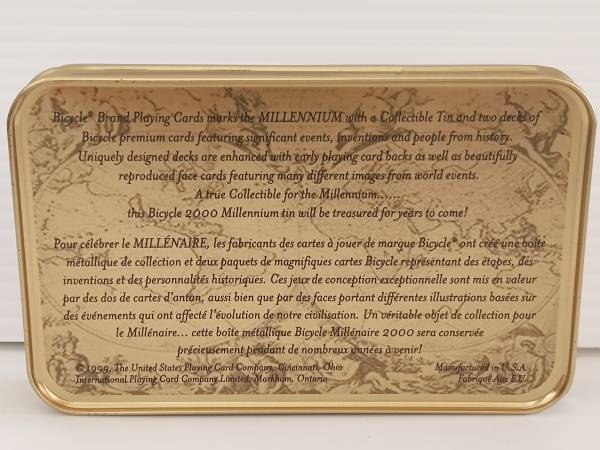 Bicycle® Brand Playing Cards marks the MILLENNIUM with a Collectible Tin and two decks of
Bicycle premium cards featuring significant events, inventions and people from history.
Uniquely designed decks are enhanced with early playing card backs as well as beautifully
reproduced face cards featuring many different images from world events.
A true Collectible for the Millennium......
this Bicycle 2000 Millennium tin will be treasured for years to come!
Pour célébrer le MILLÉNAIRE, les fabricants des cartes à jouer de marque Bicycle® ont créé une boîte
métallique de collection et deux paquets de magnifiques cartes Bicycle représentant des étapes, des
inventions et des personnalités historiques. Ces jeux de conception exceptionnelle sont mis en valeur
par des dos de cartes d'antan, aussi bien que par des faces portant différentes illustrations basées sur
des événements qui ont affecté l'évolution de notre civilisation. Un véritable objet de collection pour
le Millénaire... cette boîte métallique Bicycle Millénaire 2000 sera conservée
précieusement pendant de nombreux années à venir!
© 1999, The United States Playing Card Company, Cincinnati, Ohio
International Playing Card Company Limited, Markham, Ontario
Manufactured in U.S.A.
Fabriqué Aux E.U.